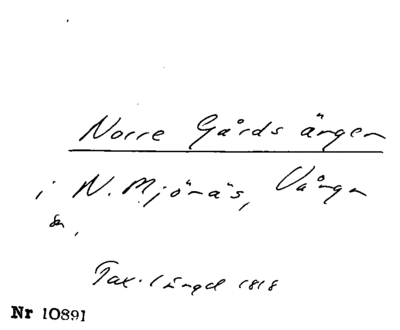 Norre Gårds ängen
i N. Mjönäs, Vånga
sn.
Tax. längd 1818
Nr 10891